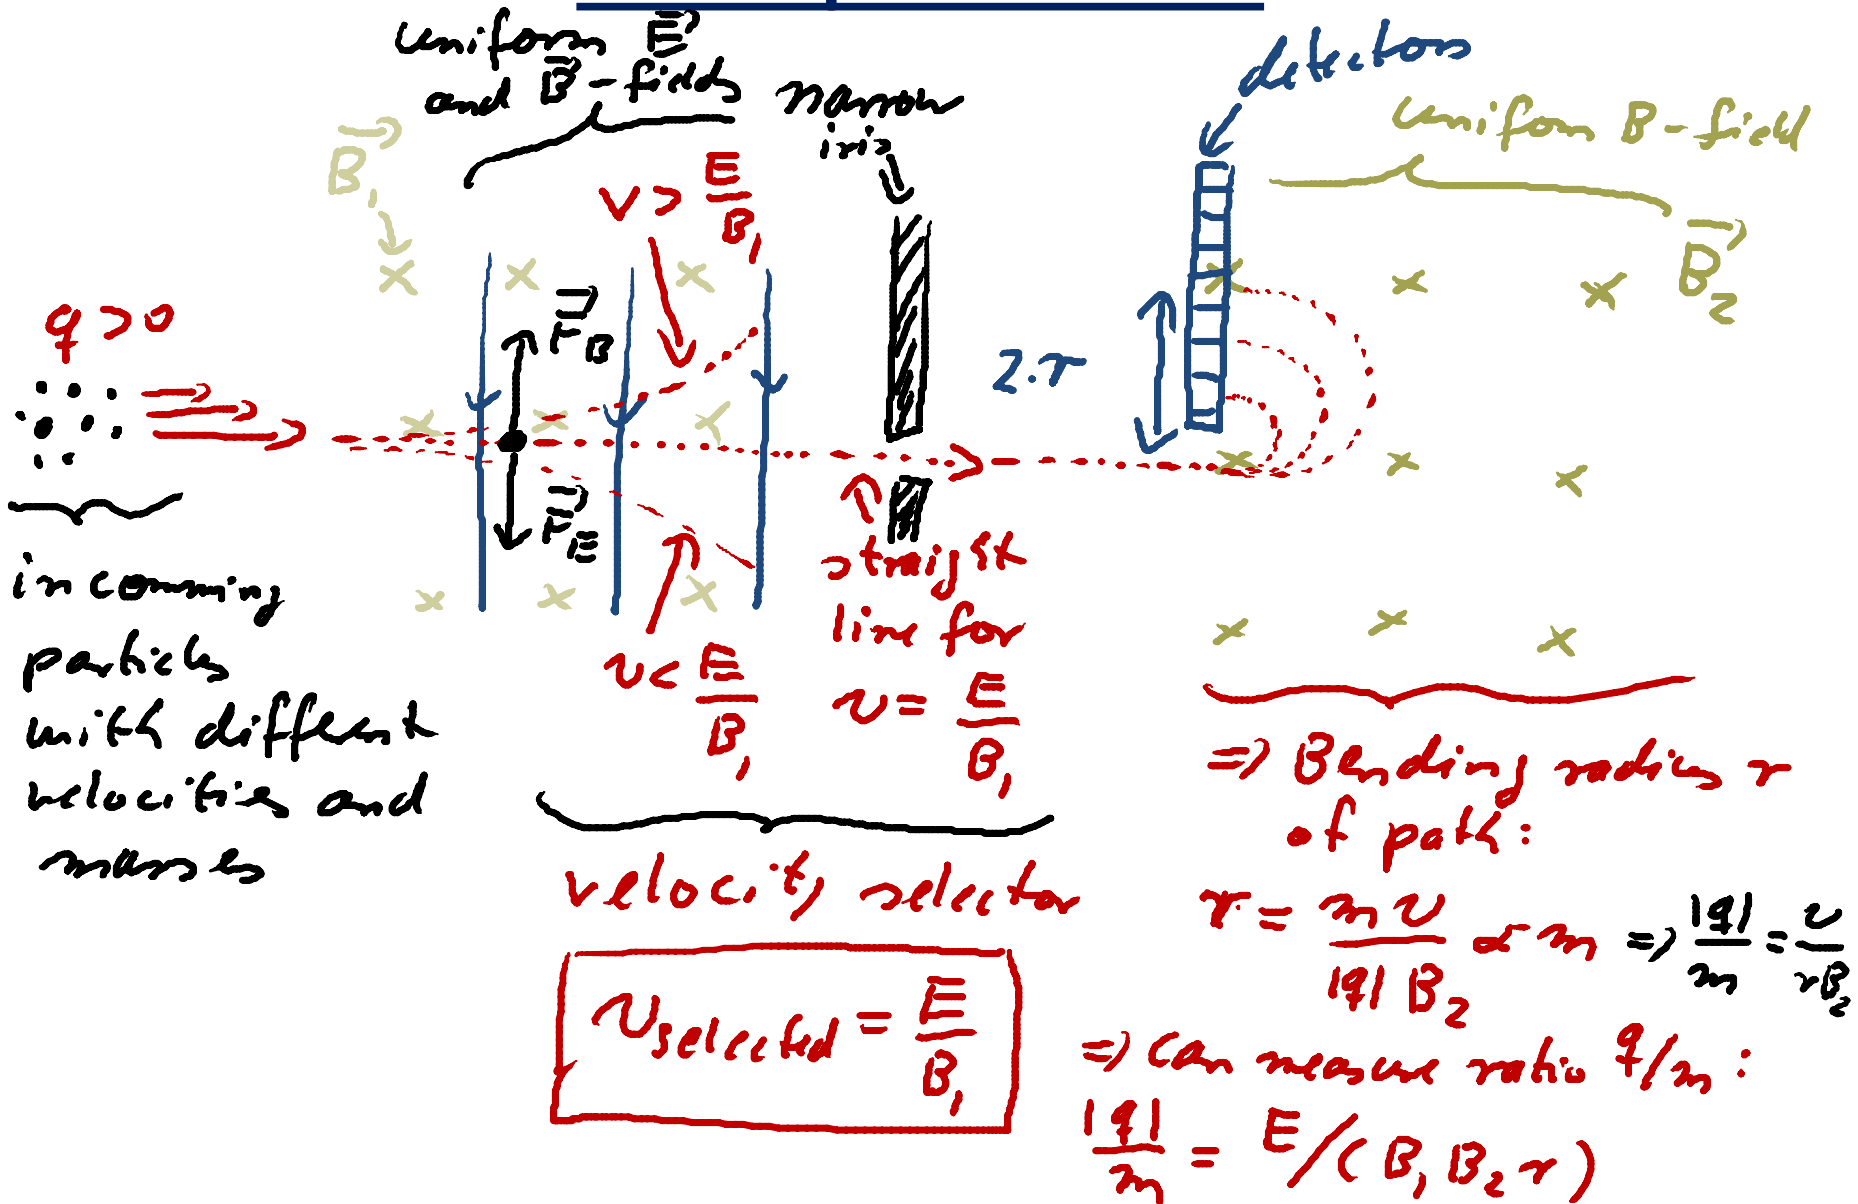 uniform E⃗
and B⃗ - fields
narrow
iris
detectors
uniform B - field
B⃗₁
B⃗₂
v > E/B₁
q > 0
F⃗_B
F⃗_E
2·r
incomming
particles
with different
velocities and
masses
v < E/B₁
straight
line for
v = E/B₁
velocity selector
v_selected = E/B₁
=> Bending radius r
of path:
r = mv/(|q| B₂) ∝ m => |q|/m = v/(rB₂)
=> can measure ratio q/m :
|q|/m = E/(B₁ B₂ r)